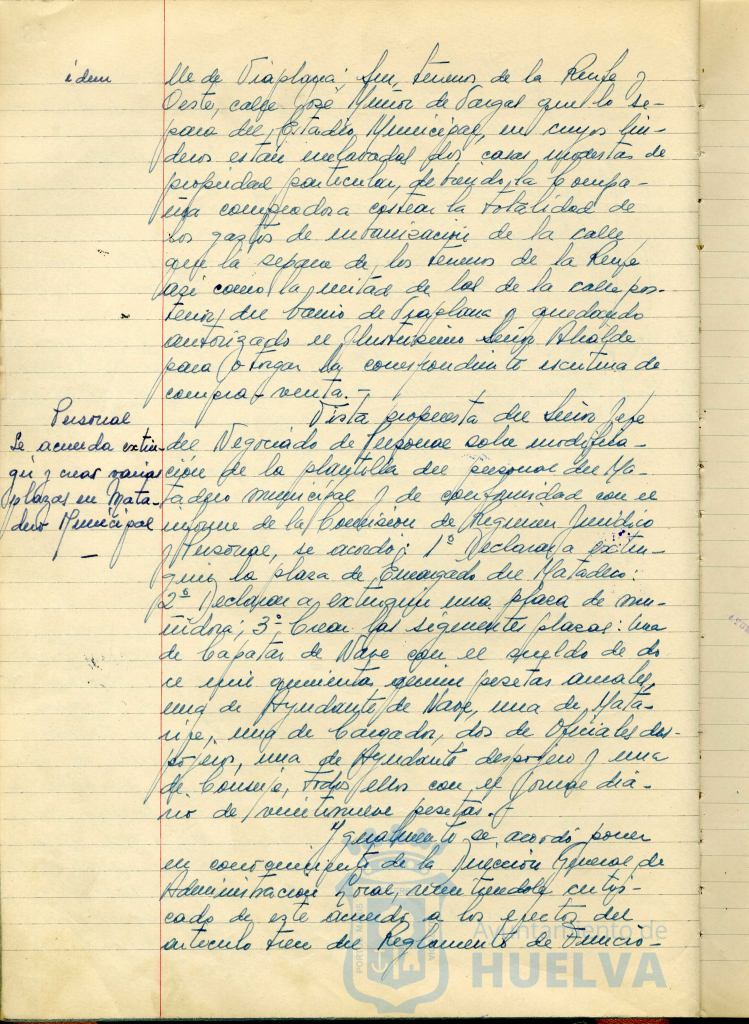 idem
lle de Viaplana; Sur, terrenos de la Renfe y
Oeste, calle José Muñoz de Vargas que lo se-
para del Estadio Municipal, en cuyos lin-
deros están enclavadas dos casas modestas de
propiedad particular, debiendo la Compa-
ñia compradora costear la totalidad de
los gastos de urbanización de la calle
que la separa de los terrenos de la Renfe
así como la mitad de los de la calle pos-
terior del barrio de Viaplana y quedando
autorizado el Ilustrísimo Señor Alcalde
para otorgar la correspondiente escritura de
compra-venta.-
Personal
Se acuerda extin-
guir y crear varias
plazas en Mata-
dero Municipal
Vista propuesta del Señor Jefe
del Negociado de Personal sobre modifica-
ción de la plantilla del personal del Ma-
tadero municipal y de conformidad con el
informe de la Comisión de Régimen Jurídico
y Personal, se acordó: 1º Declarar a extin-
guir la plaza de Encargado del Matadero:
2º Declarar a extinguir una plaza de
3º Crear las siguientes plazas: Una
de Capataz de Nave con el sueldo de do
ce mil quinientas pesetas anuales,
una de Ayudante de Nave, una de Mata-
rife, una de Cargador, dos de Oficiales des-
pojeros, una de Ayudante despojero y una
de Conserje, todos ellos con el jornal dia-
rio de veintinueve pesetas.-
Igualmente se acordó poner
en conocimiento de la Dirección General de
Administración Local, remitiendole certifi-
cado de este acuerdo a los efectos del
artículo trece del Reglamento de Funcio-
Ayuntamiento de
HUELVA